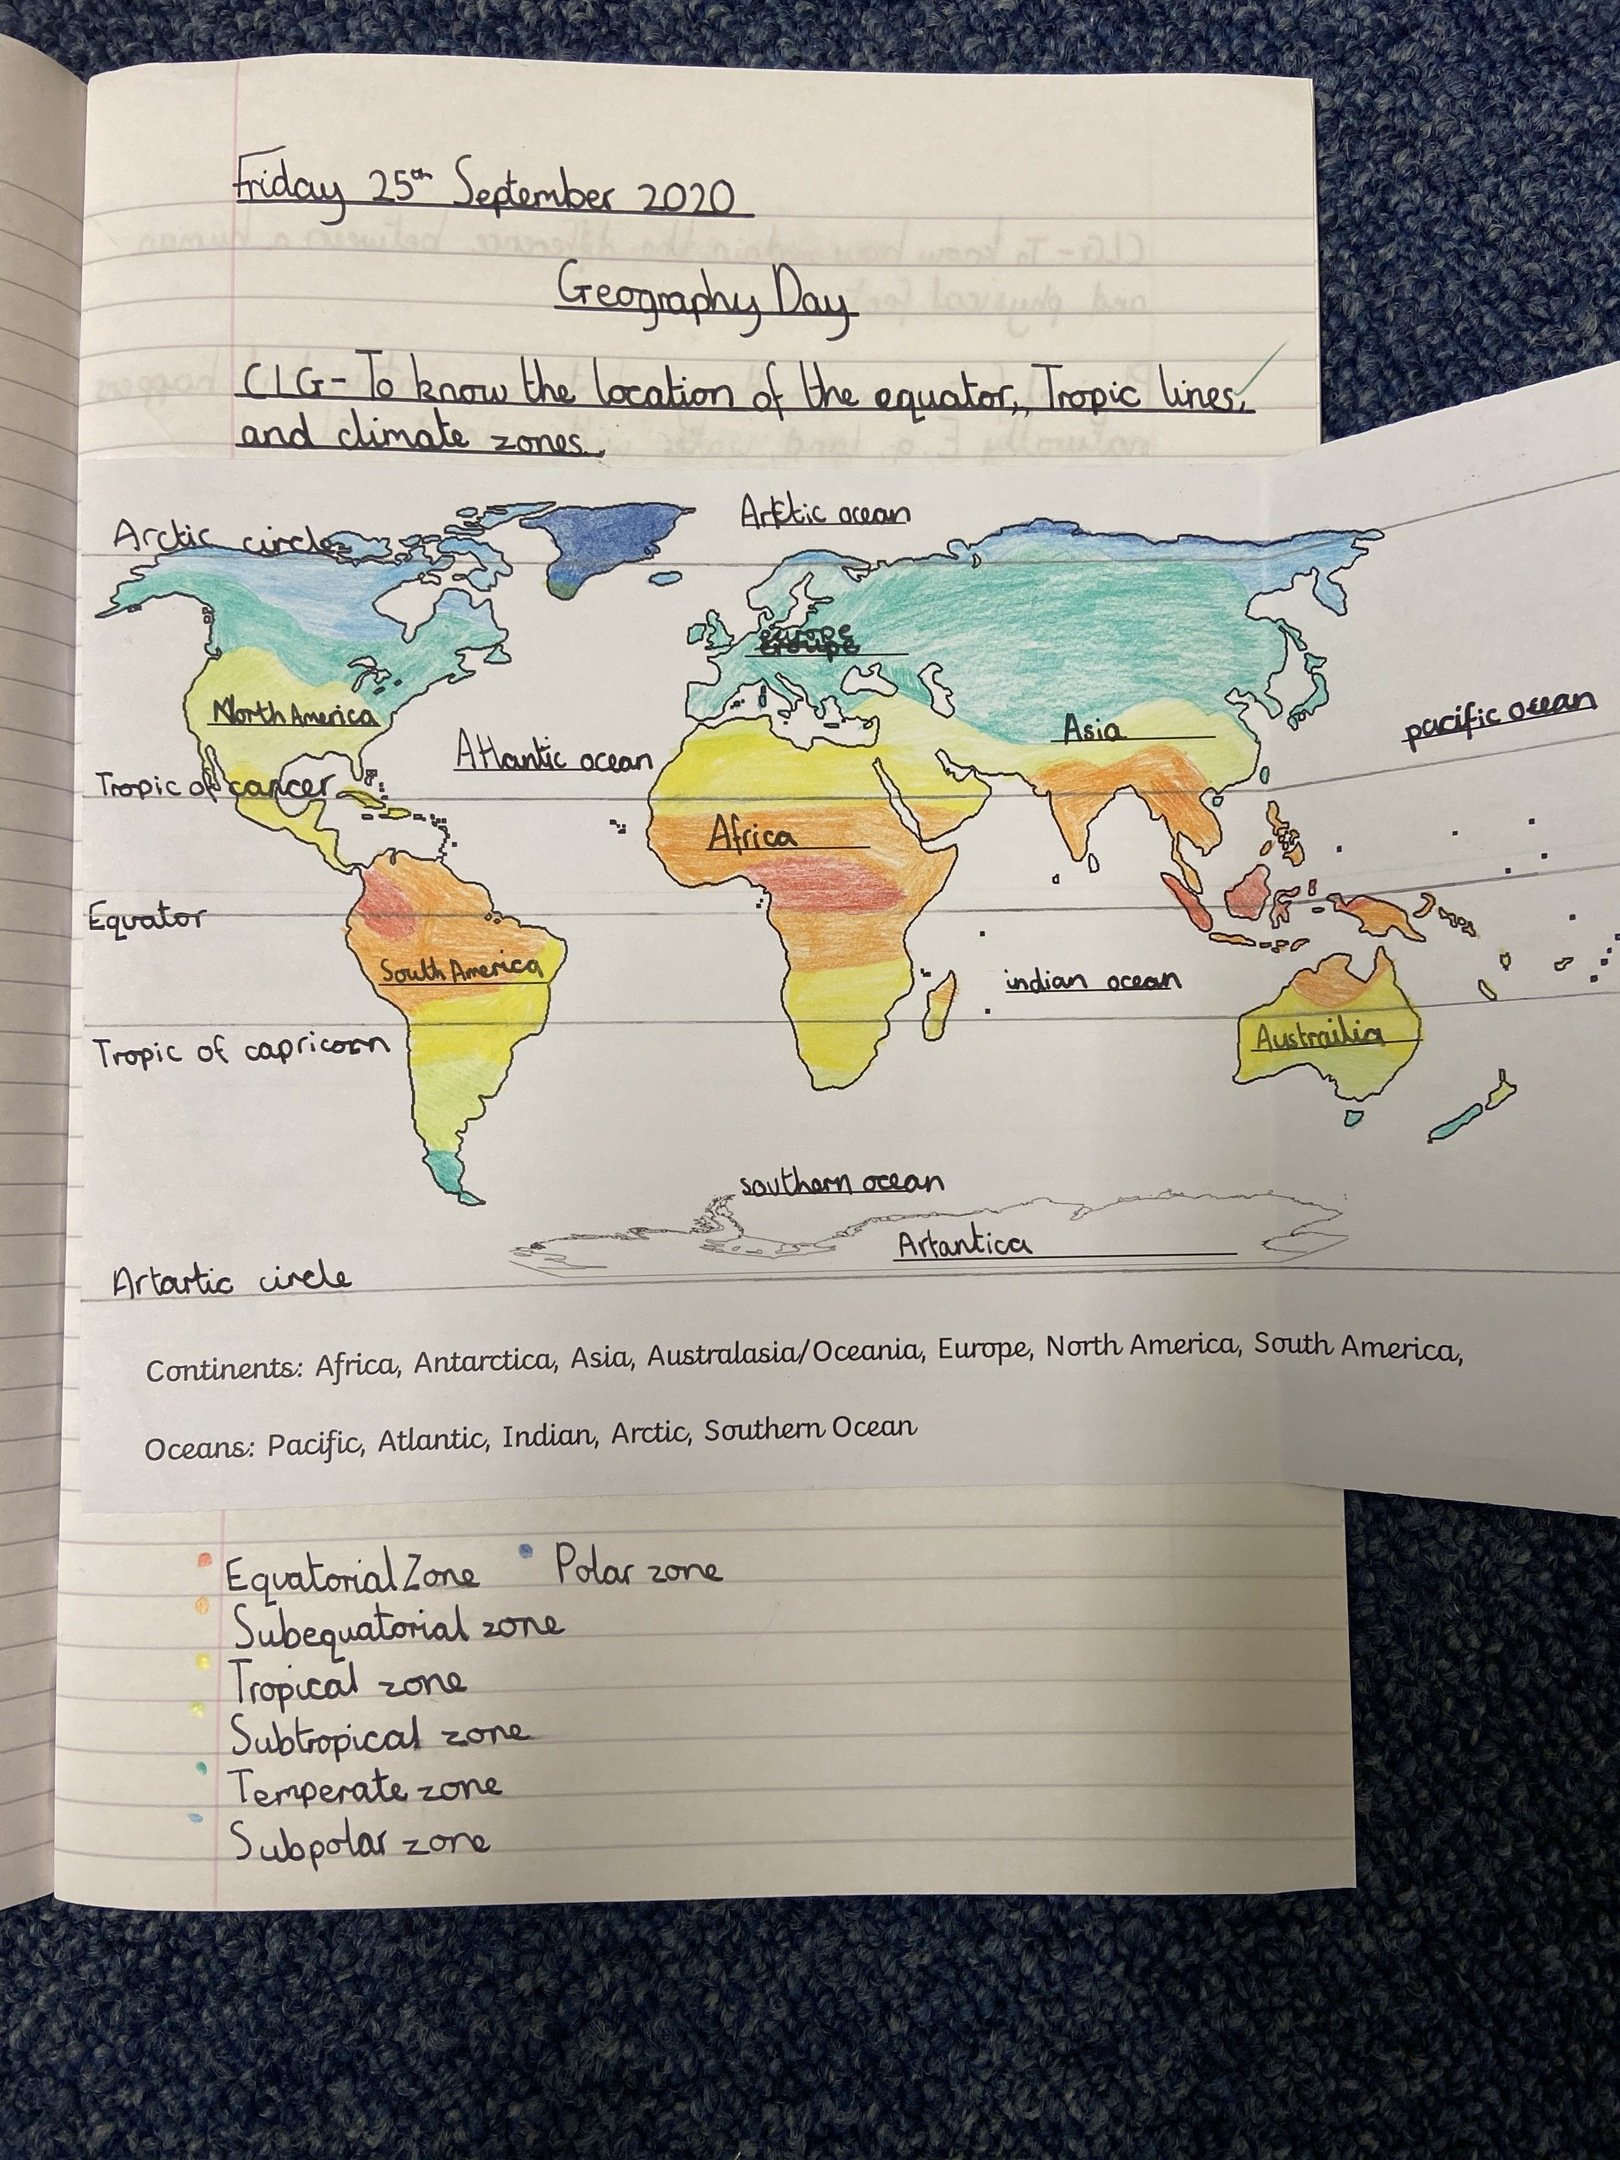 Friday 25th September 2020
Geography Day
CLG- To know the location of the equator, Tropic lines,
and climate zones.
Arctic ocean
Arctic circle
europe
North America
Asia
pacific ocean
Atlantic ocean
Tropic of cancer
Africa
Equator
South America
indian ocean
Austrailia
Tropic of capricorn
southern ocean
Artantica
Artartic circle
Continents: Africa, Antarctica, Asia, Australasia/Oceania, Europe, North America, South America,
Oceans: Pacific, Atlantic, Indian, Arctic, Southern Ocean
Equatorial Zone
Polar zone
Subequatorial zone
Tropical zone
Subtropical zone
Temperate zone
Subpolar zone